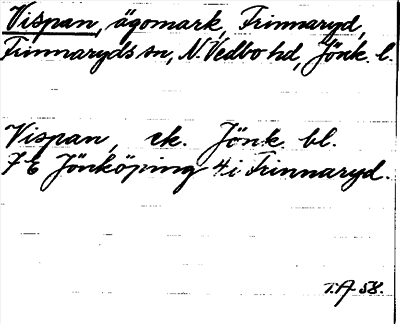 Vispan, ägomark, Frinnaryd,
Frinnaryds sn, N. Vedbo hd, Jönk. l.
Vispan, ek. Jönk. bl.
7 E Jönköping 4 i Frinnaryd.
T.A. 58.